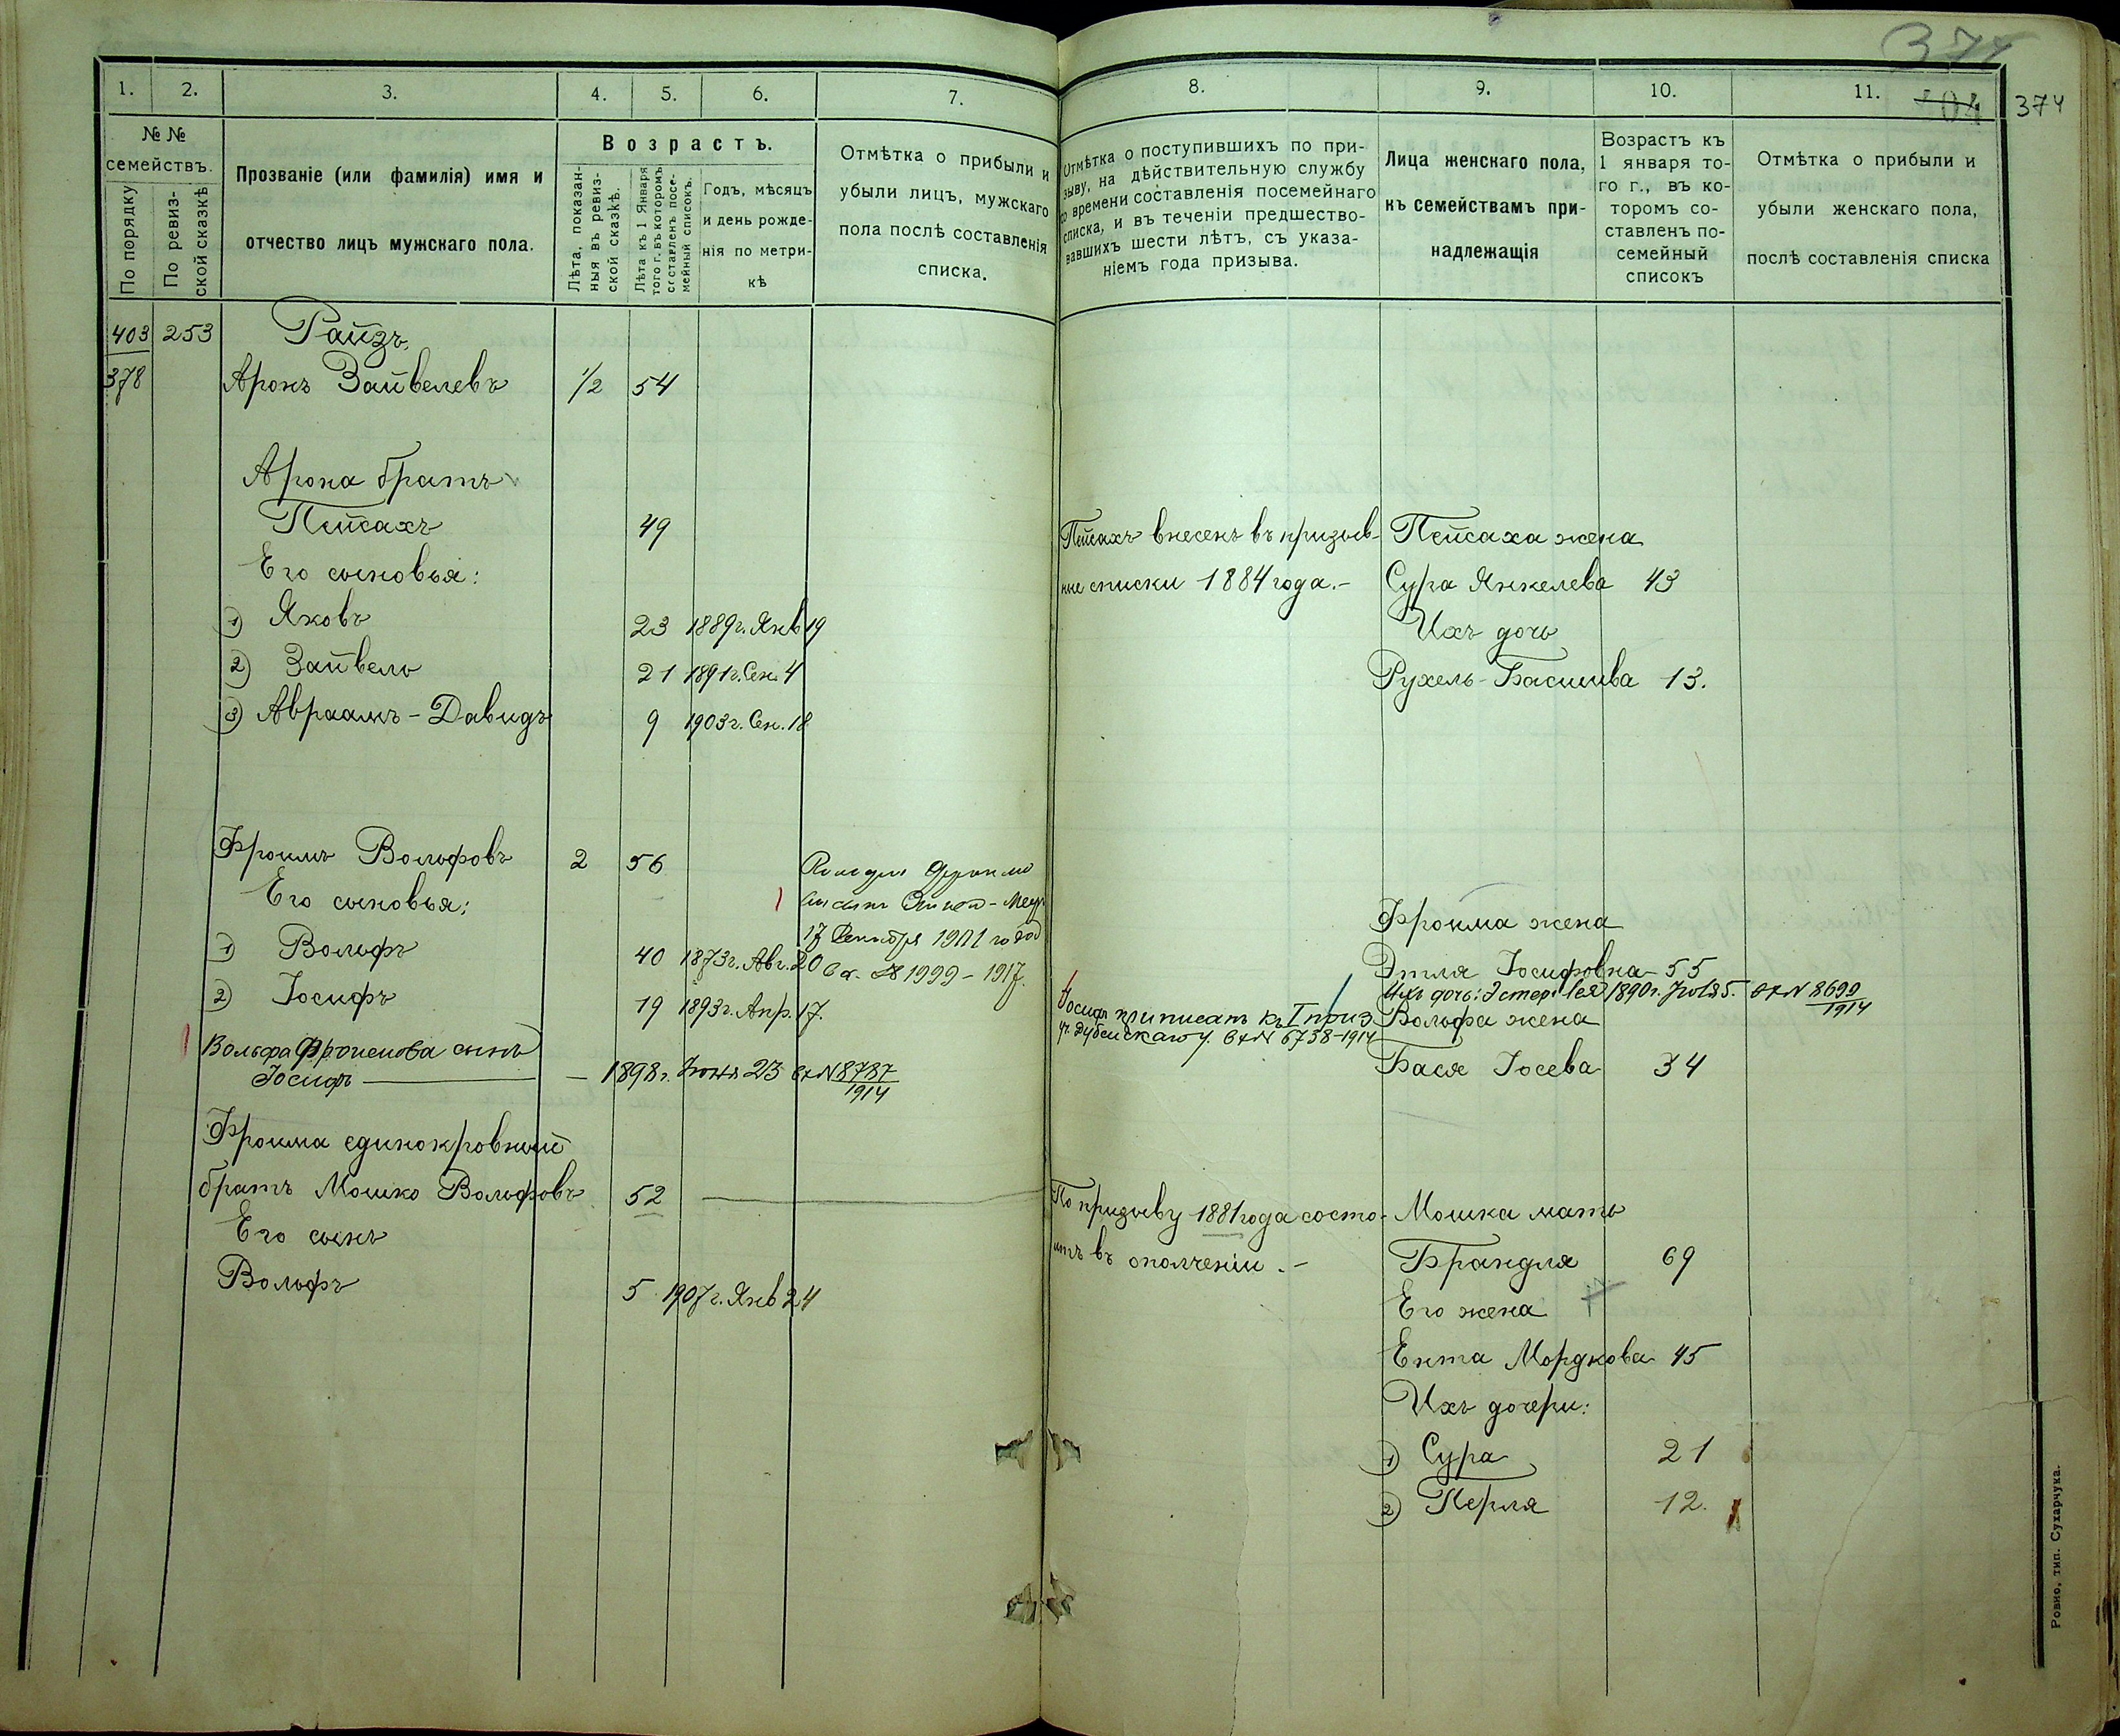 374
1. 2. 3. 4. 5. 6. 7.
№ №
семействъ.
По порядку
По ревиз-
ской сказкѣ
Прозваніе (или фамилія) имя и
отчество лицъ мужскаго пола.
Возрастъ.
Лѣта, показан-
ныя въ ревиз-
ской сказкѣ.
Лѣта къ 1 Января
того г. въ которомъ
составленъ посе-
мейный списокъ.
Годъ, мѣсяцъ
и день рожде-
нія по метри-
кѣ
Отмѣтка о прибыли и
убыли лицъ, мужскаго
пола послѣ составленія
списка.
403 253 Райзъ
378 Аронъ Зайвелевъ 1/2 54
Арона братъ
Пейсахъ 49
Его сыновья:
1) Яковъ 23 1889г. Янв 19
2) Зайвель 21 1891г. Сен. 4
3) Авраамъ-Давидъ 9 1903г. Сен. 18
Фроимъ Вольфовъ 2 56
Его сыновья:
17 1901 года
1) Вольфъ 40 1873г. Авг. 20
Вх. № 1999-1917.
2) Іосифъ 19 1893г. Апр. 17.
Вольфа Фроимова сынъ
Іосифъ — 1898г. Іюня 23 вх N 8787
1914
Фроима единокровный
братъ Мошко Вольфовъ 52
Его сынъ
Вольфъ 5 1907г. Янв 24
8. 9. 10. 11. 404 374
Отмѣтка о поступившихъ по при-
зыву, на дѣйствительную службу
со времени составленія посемейнаго
списка, и въ теченіи предшество-
вавшихъ шести лѣтъ, съ указа-
ніемъ года призыва.
Лица женскаго пола,
къ семействамъ при-
надлежащія
Возрастъ къ
1 января то-
го г., въ ко-
торомъ со-
ставленъ по-
семейный
списокъ
Отмѣтка о прибыли и
убыли женскаго пола,
послѣ составленія списка
Пейсахъ внесенъ въ призыв- Пейсаха жена
ные списки 1884 года.- Сура Янкелева 43
Ихъ дочь
Рухель-Басшива 13.
Фроима жена
Этля Іосифовна 55
Ихъ дочь: Эстер Лея 1890г. Іюля 5. вх N 8699
1914
Іосифъ приписанъ къ I приз Вольфа жена
уч. Дубенскаго у. вх N 6738-1914
Бася Іосева 34
По призыву 1881 года состо- Мошка мать
итъ въ ополченіи.- Брандля 69
Его жена
Ента Мордкова 45
Ихъ дочери:
1) Сура 21
2) Перля 12.
Ровно, тип. Сухарчука.